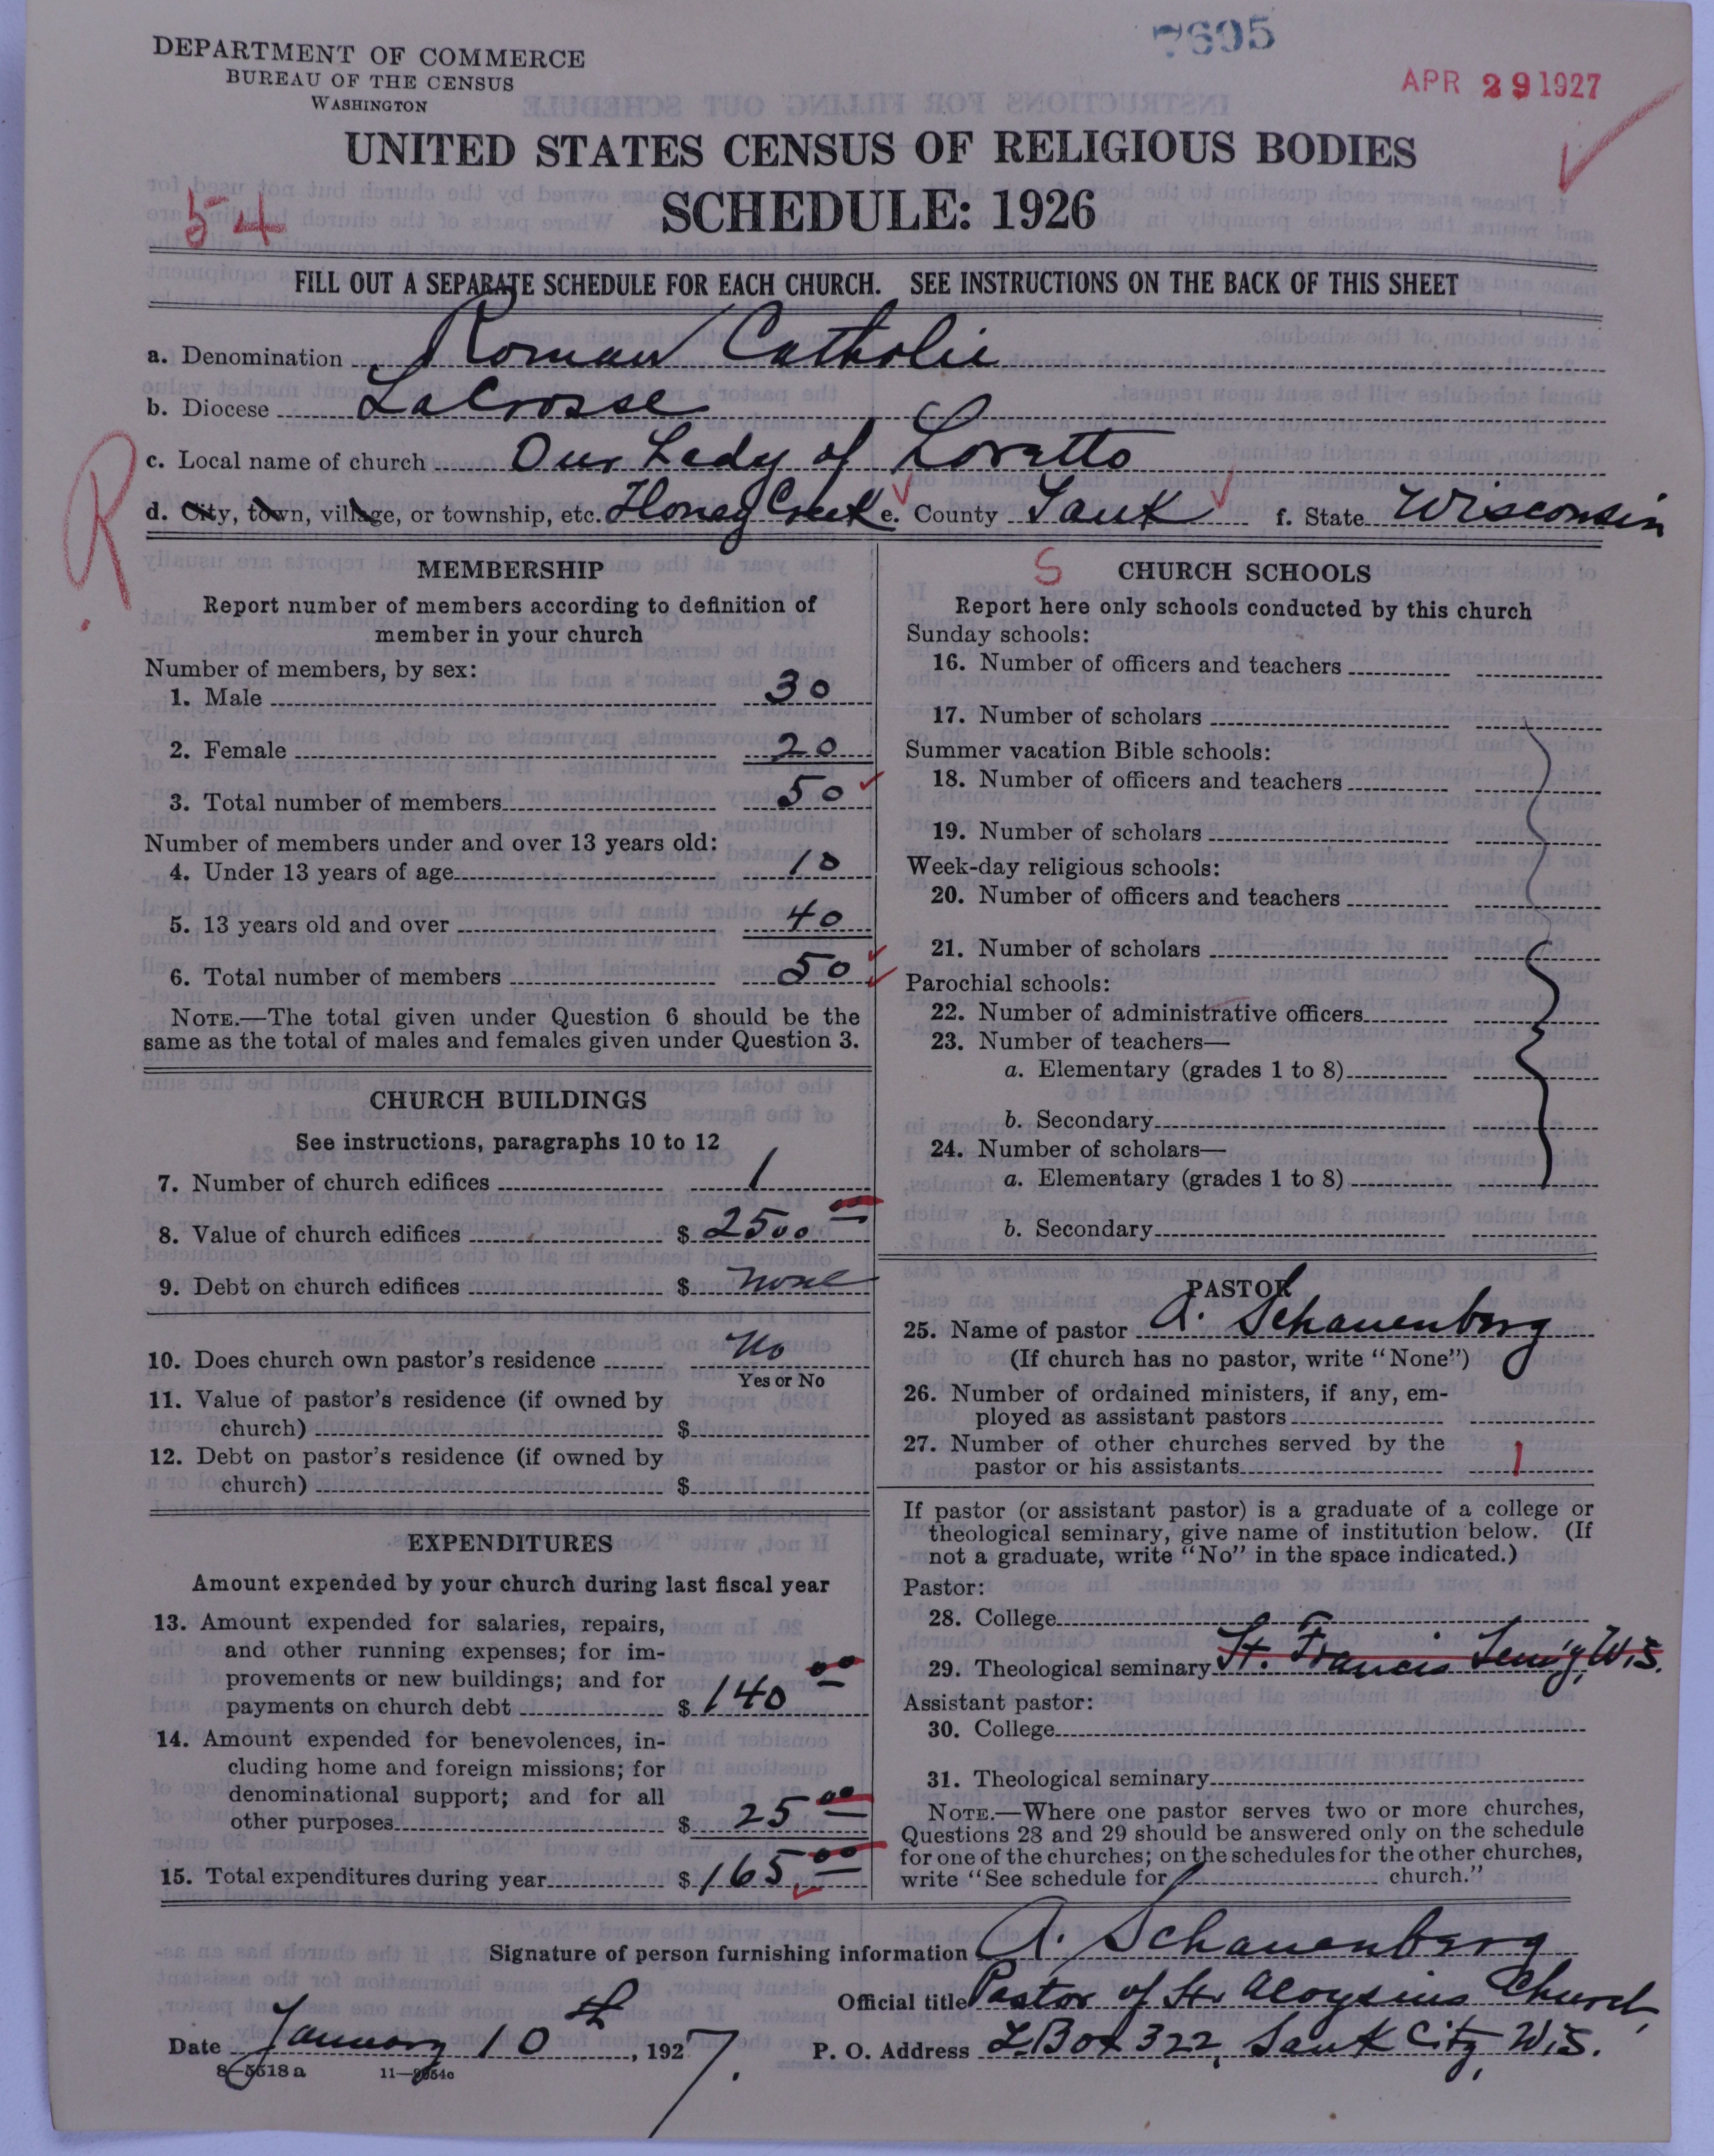 7695
APR 29 1927
DEPARTMENT OF COMMERCE
BUREAU OF THE CENSUS
WASHINGTON
UNITED STATES CENSUS OF RELIGIOUS BODIES
SCHEDULE: 1926
54
FILL OUT A SEPARATE SCHEDULE FOR EACH CHURCH. SEE INSTRUCTIONS ON THE BACK OF THIS SHEET
a. Denomination Roman Catholic
b. Diocese LaCrosse
c. Local name of church Our Lady of Loratto
d. City, town, village, or township, etc. Honey Creek e. County Sauk f. State Wisconsin
R
MEMBERSHIP
Report number of members according to definition of
member in your church
Number of members, by sex:
1. Male 30
2. Female 20
3. Total number of members 50
Number of members under and over 13 years old:
4. Under 13 years of age 10
5. 13 years old and over 40
6. Total number of members 50
NOTE.—The total given under Question 6 should be the
same as the total of males and females given under Question 3.
CHURCH BUILDINGS
See instructions, paragraphs 10 to 12
7. Number of church edifices 1
8. Value of church edifices $ 2500 00
9. Debt on church edifices $ none
10. Does church own pastor's residence No
Yes or No
11. Value of pastor's residence (if owned by
church) $
12. Debt on pastor's residence (if owned by
church) $
EXPENDITURES
Amount expended by your church during last fiscal year
13. Amount expended for salaries, repairs,
and other running expenses; for im-
provements or new buildings; and for
payments on church debt $ 140 00
14. Amount expended for benevolences, in-
cluding home and foreign missions; for
denominational support; and for all
other purposes $ 25 00
15. Total expenditures during year $ 165 00
S CHURCH SCHOOLS
Report here only schools conducted by this church
Sunday schools:
16. Number of officers and teachers
17. Number of scholars
Summer vacation Bible schools:
18. Number of officers and teachers
19. Number of scholars
Week-day religious schools:
20. Number of officers and teachers
21. Number of scholars
Parochial schools:
22. Number of administrative officers
23. Number of teachers—
a. Elementary (grades 1 to 8)
b. Secondary
24. Number of scholars—
a. Elementary (grades 1 to 8)
b. Secondary
PASTOR
25. Name of pastor A. Schauenberg
(If church has no pastor, write "None")
26. Number of ordained ministers, if any, em-
ployed as assistant pastors
27. Number of other churches served by the
pastor or his assistants 1
If pastor (or assistant pastor) is a graduate of a college or
theological seminary, give name of institution below. (If
not a graduate, write "No" in the space indicated.)
Pastor:
28. College
29. Theological seminary St. Francis Sem'y, Wis.
Assistant pastor:
30. College
31. Theological seminary
NOTE.—Where one pastor serves two or more churches,
Questions 28 and 29 should be answered only on the schedule
for one of the churches; on the schedules for the other churches,
write "See schedule for church."
Signature of person furnishing information A. Schauenberg
Official title Pastor of St. Aloysius Church,
Date January 10th, 1927. P. O. Address L. Box 322, Sauk City, Wis.
8—5518 a